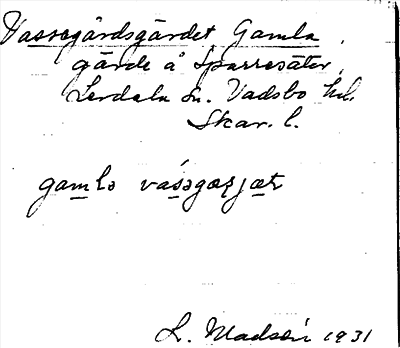 Vassegårdsgärdet Gamla,
gärde å Sparresäter,
Lerdala sn. Vadsbo hd.
Skar. l.
gamlə vásəgaʂjæt
L. Madsén 1931